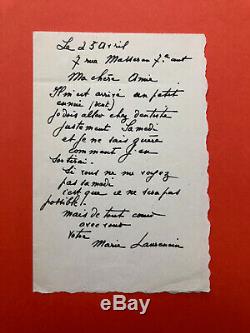 Le 25 Avril
7 rue Masseran 7e arrt
Ma chère Amie
Il m'est arrivé un petit
ennui (dent)
je dois aller chez dentiste
justement Samedi
et je ne sais guère
comment j'en
sortirai.
Si vous ne me voyez
pas samedi
c'est que ce ne sera pas
possible!
mais de tout coeur
avec vous
votre
Marie Laurencin